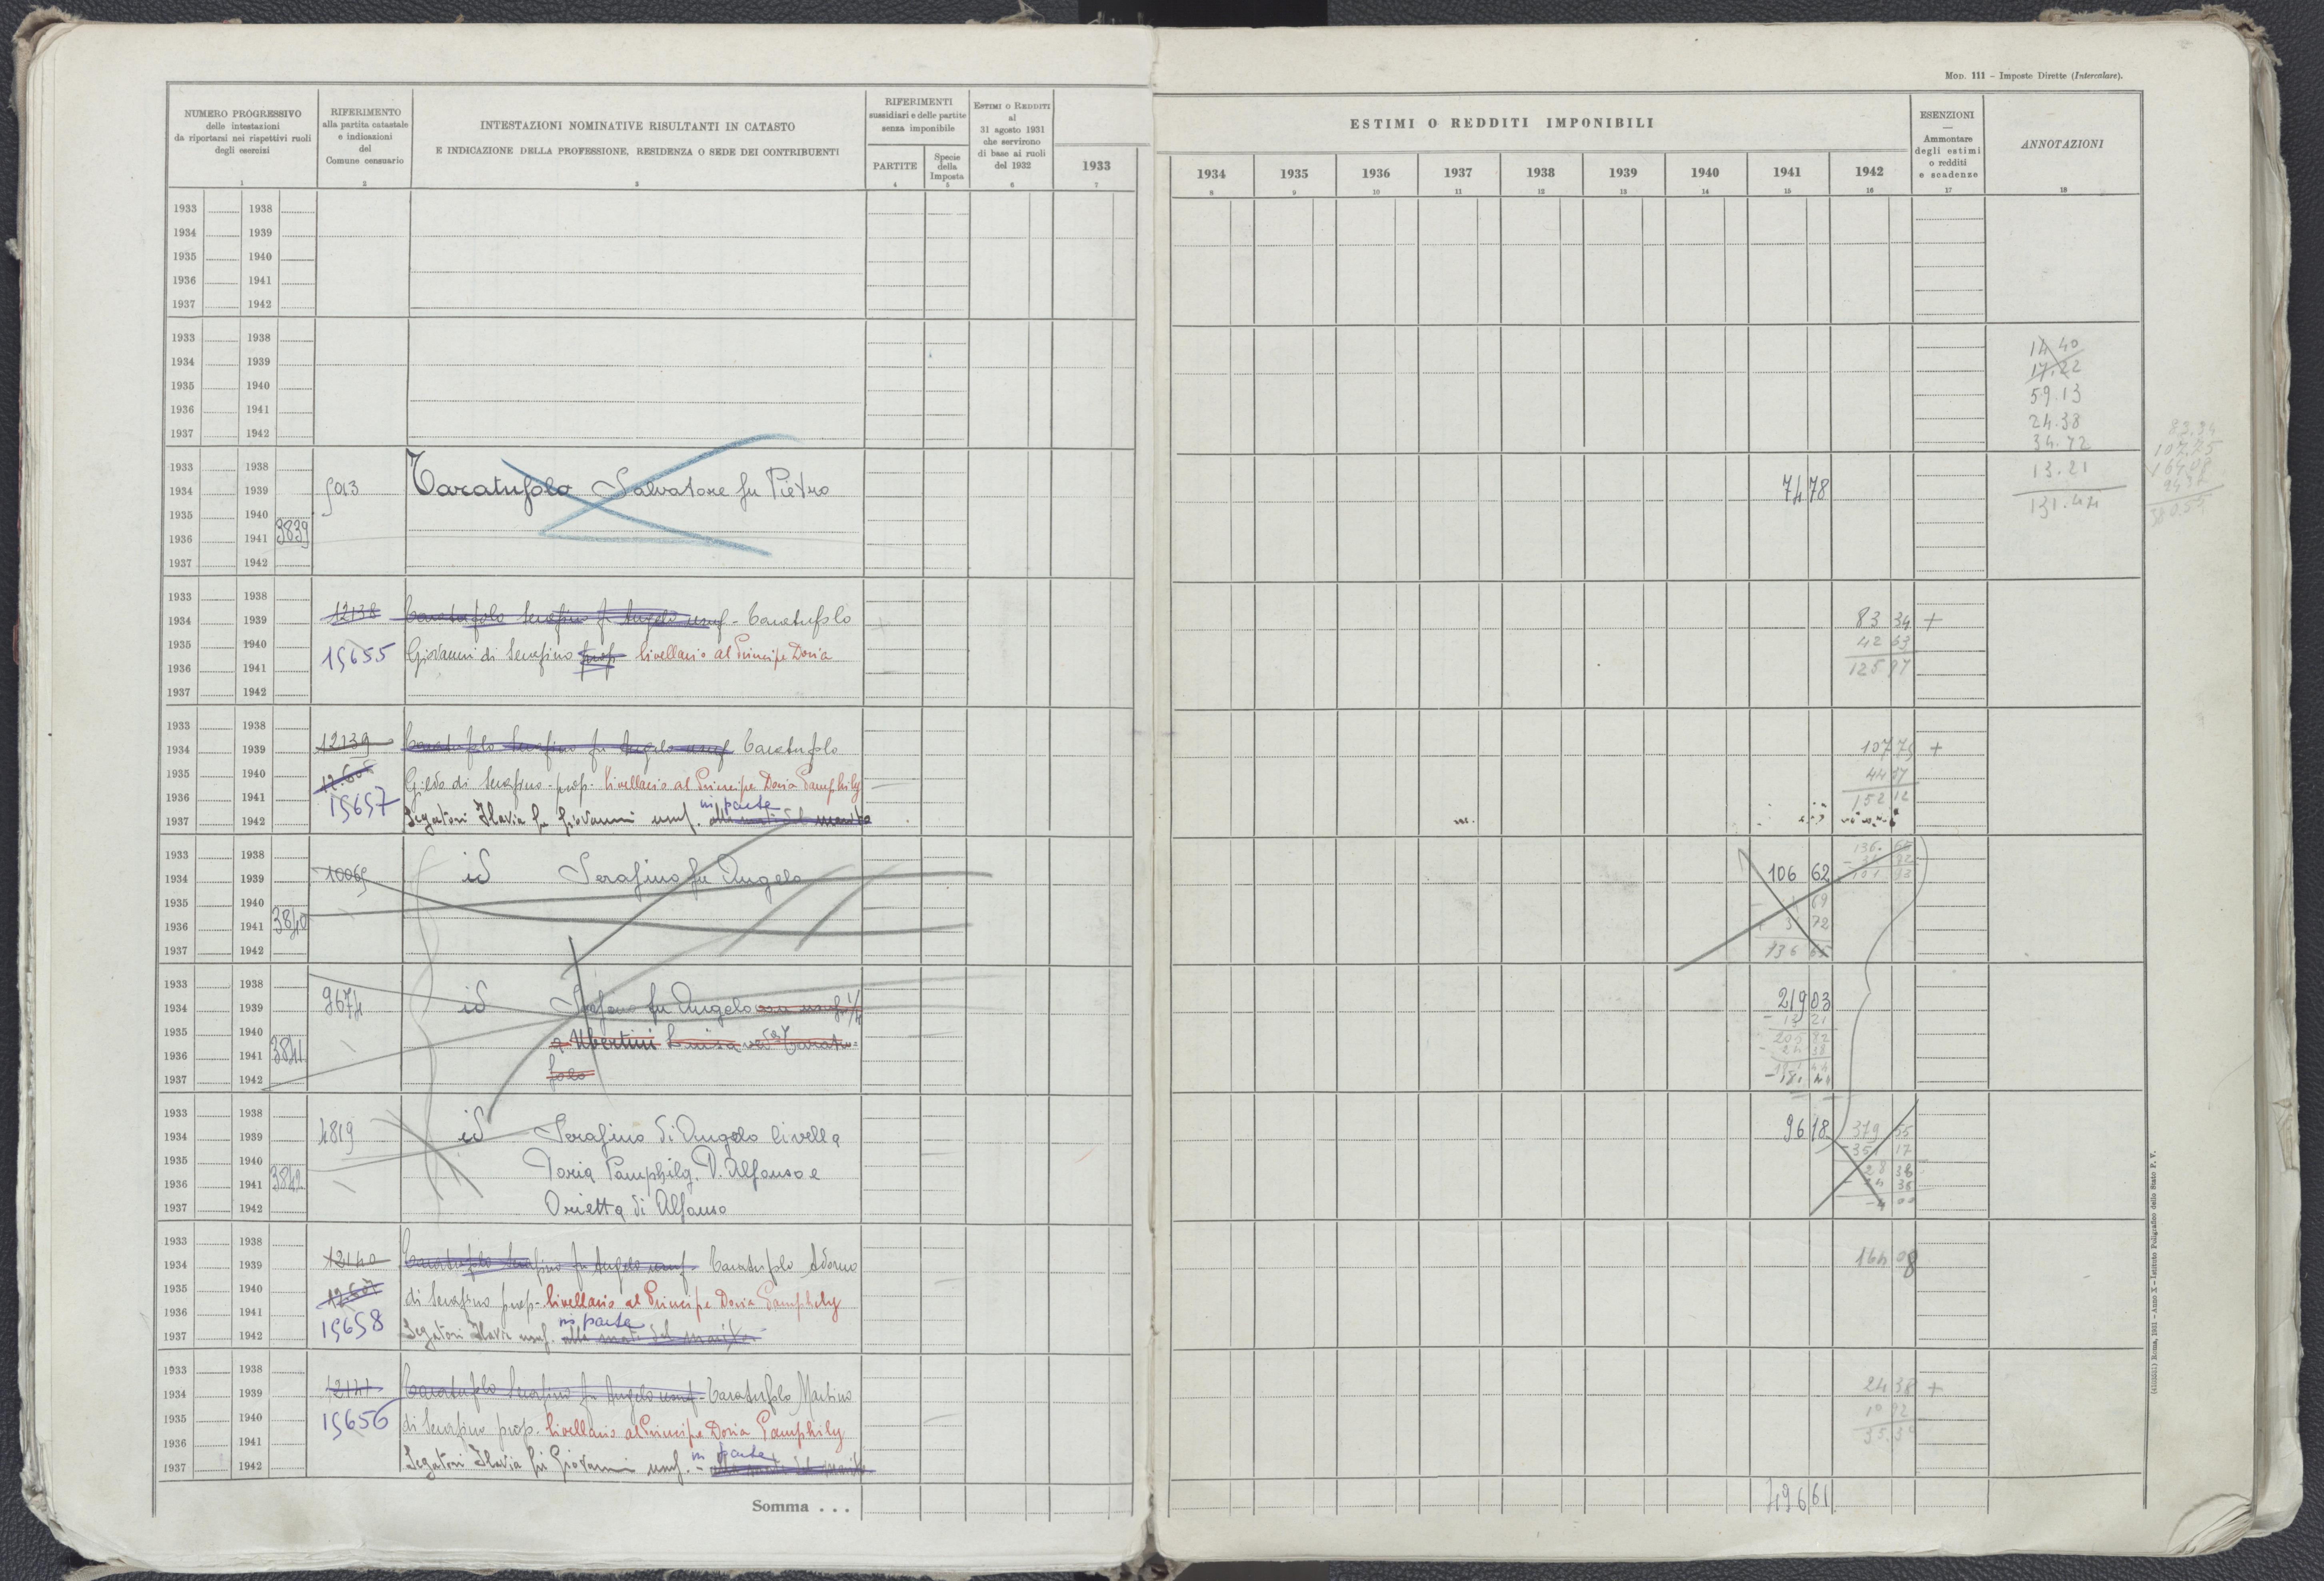 MOD. 111 – Imposte Dirette (Intercalare).
NUMERO PROGRESSIVO
delle intestazioni
da riportarsi nei rispettivi ruoli
degli esercizi
1
RIFERIMENTO
alla partita catastale
e indicazioni
del
Comune censuario
2
INTESTAZIONI NOMINATIVE RISULTANTI IN CATASTO
E INDICAZIONE DELLA PROFESSIONE, RESIDENZA O SEDE DEI CONTRIBUENTI
3
RIFERIMENTI
sussidiari e delle partite
senza imponibile
PARTITE
4
Specie
della
Imposta
5
ESTIMI O REDDITI
al
31 agosto 1931
che servirono
di base ai ruoli
del 1932
6
ESTIMI O REDDITI IMPONIBILI
1933 1934 1935 1936 1937 1938 1939 1940 1941 1942
7 8 9 10 11 12 13 14 15 16
ESENZIONI
—
Ammontare
degli estimi
o redditi
e scadenze
17
ANNOTAZIONI
18
1933 1938
1934 1939
1935 1940
1936 1941
1937 1942
1933 1938
1934 1939
1935 1940
1936 1941
1937 1942
14 40
17.22
59.13
24.38
34.72
13.21
131.44
1933 1938
1934 1939 5013 Taratufolo Salvatore fu Pietro 74 78
1935 1940
1936 1941 3839
1937 1942
1933 1938
1934 1939 12138 Taratufolo Serafino fu Angelo usuf - Taratufolo 83 34 +
1935 1940 15655 Giovanni di Serafino prop livellario al Principe Doria 42 63
1936 1941 125 97
1937 1942
1933 1938
1934 1939 12139 Taratufolo Serafino fu Angelo usuf Taratufolo 107 75 +
1935 1940 Gildo di Serafino - prop - livellario al Principe Doria Pamphily 44 37
1936 1941 15657 152 12
in parte
1937 1942 Segatori Flavia fu Giovanni usuf.
1933 1938
1934 1939 10069 id Serafino fu Angelo 106 62
1935 1940
1936 1941 3840
1937 1942 136 65
1933 1938
1934 1939 9674 id Stefano fu Angelo 219 03
1935 1940 e Ubertini Luisa ved Taratu-
1936 1941 3841
1937 1942 folo
1933 1938
1934 1939 4819 id Serafino di Angelo livella 96 18
1935 1940 Doria Pamphily D. Alfonso e
1936 1941 3842
1937 1942 Orietta di Alfonso
1933 1938
1934 1939 12140 Taratufolo Serafino fu Angelo usuf - Taratufolo Adorno 164 08
1935 1940 di Serafino prop - livellario al Principe Doria Pamphily
1936 1941 15658
in parte
1937 1942 Segatori Flavia usuf. alla morte del marito
1933 1938
1934 1939 12141 Taratufolo Serafino fu Angelo usuf - Taratufolo Martino 24 38 +
1935 1940 15656 di Serafino prop - livellario al Principe Doria Pamphily 10 92
1936 1941 35.30
in parte
1937 1942 Segatori Flavia fu Giovanni usuf. -
Somma . . . 496 61
(4103551) Roma, 1931 – Anno X – Istituto Poligrafico dello Stato P. V.